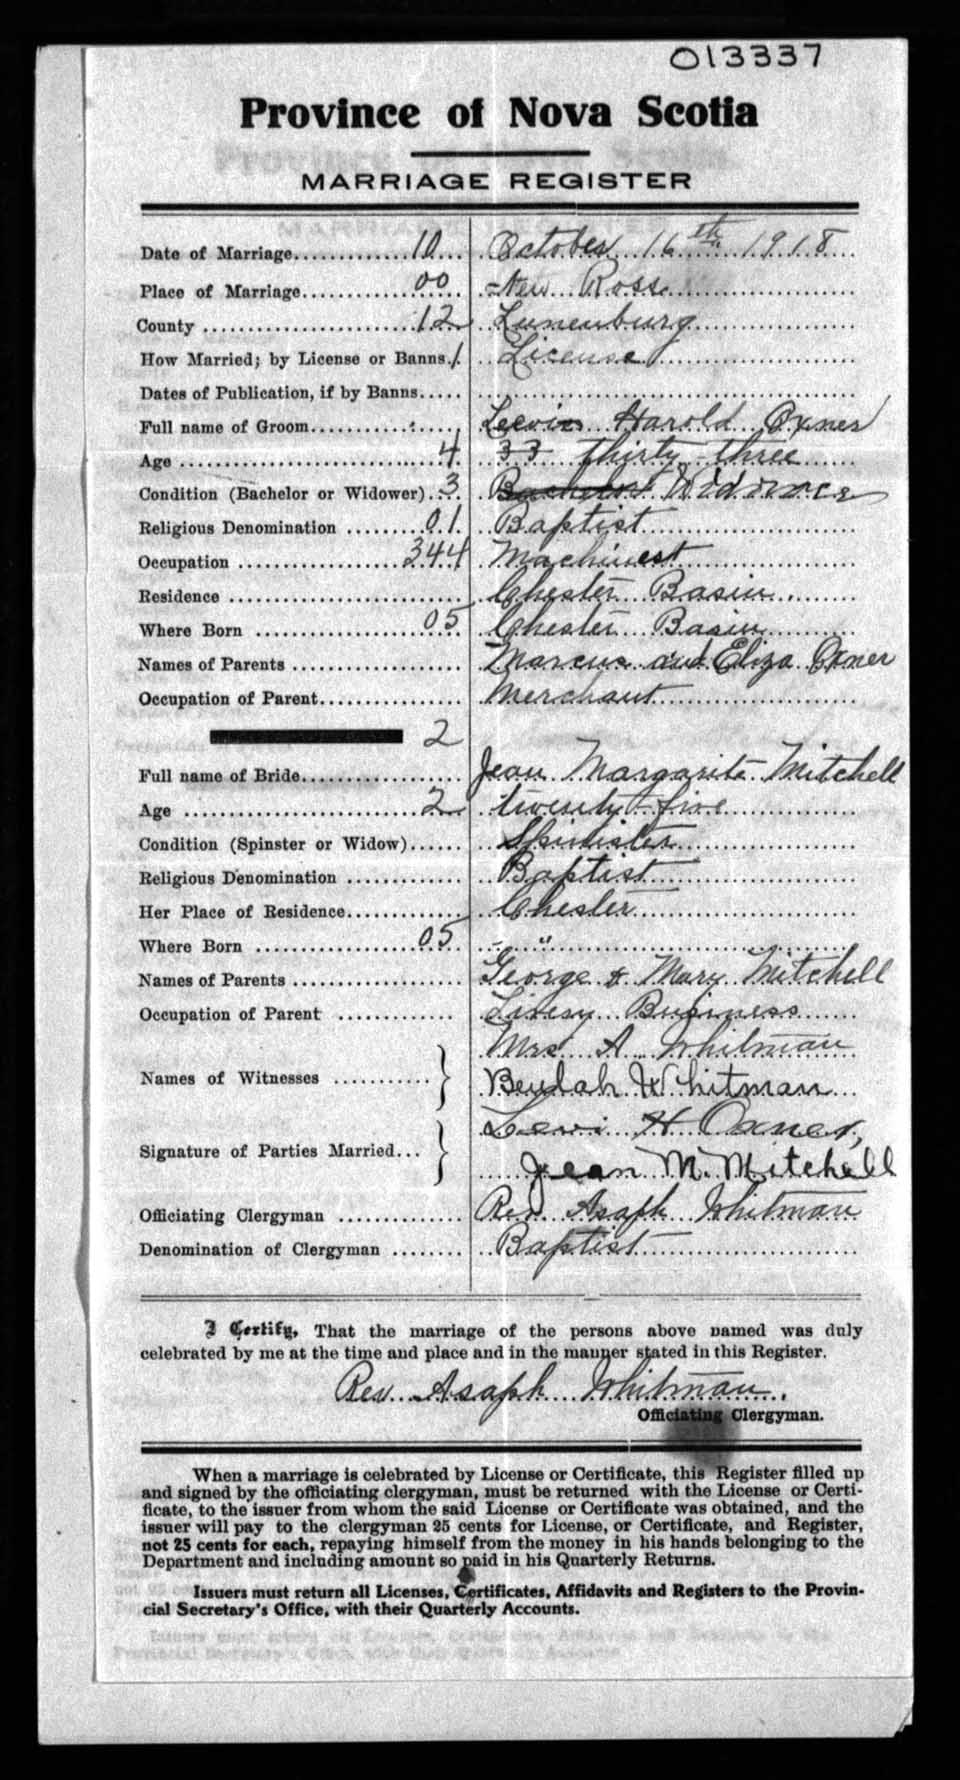 013337
Province of Nova Scotia
MARRIAGE REGISTER
Date of Marriage.............10... October 16th 1918
Place of Marriage............00... New Ross
County ......................12... Lunenburg
How Married; by License or Banns.1 License
Dates of Publication, if by Banns.....
Full name of Groom............... Harold Oxner
Age .........................4 33 thirty-three
Condition (Bachelor or Widower)..3 Bachelor Widower
Religious Denomination .......01 Baptist
Occupation .................344 Machinest
Residence ....................... Chester Basin
Where Born ..................05 Chester Basin
Names of Parents ................ Marcus and Eliza Oxner
Occupation of Parent............. Merchant
2
Full name of Bride............... Jean Margarite Mitchell
Age .........................2 twenty-five
Condition (Spinster or Widow)...... Spinister
Religious Denomination .......... Baptist
Her Place of Residence........... Chester
Where Born ..................05 - "
Names of Parents ................ George & Mary Mitchell
Occupation of Parent ............ Livery Business
Mrs A. Whitman
Names of Witnesses ........... } Beulah Whitman
Levi H Oxner,
Signature of Parties Married... } Jean M. Mitchell
Officiating Clergyman ........... Rev. Asaph Whitman
Denomination of Clergyman ....... Baptist
I Certify, That the marriage of the persons above named was duly
celebrated by me at the time and place and in the manner stated in this Register.
Rev. Asaph Whitman.
Officiating Clergyman.
When a marriage is celebrated by License or Certificate, this Register filled up
and signed by the officiating clergyman, must be returned with the License or Certi-
ficate, to the issuer from whom the said License or Certificate was obtained, and the
issuer will pay to the clergyman 25 cents for License, or Certificate, and Register,
not 25 cents for each, repaying himself from the money in his hands belonging to the
Department and including amount so paid in his Quarterly Returns.
Issuers must return all Licenses, Certificates, Affidavits and Registers to the Provin-
cial Secretary's Office, with their Quarterly Accounts.